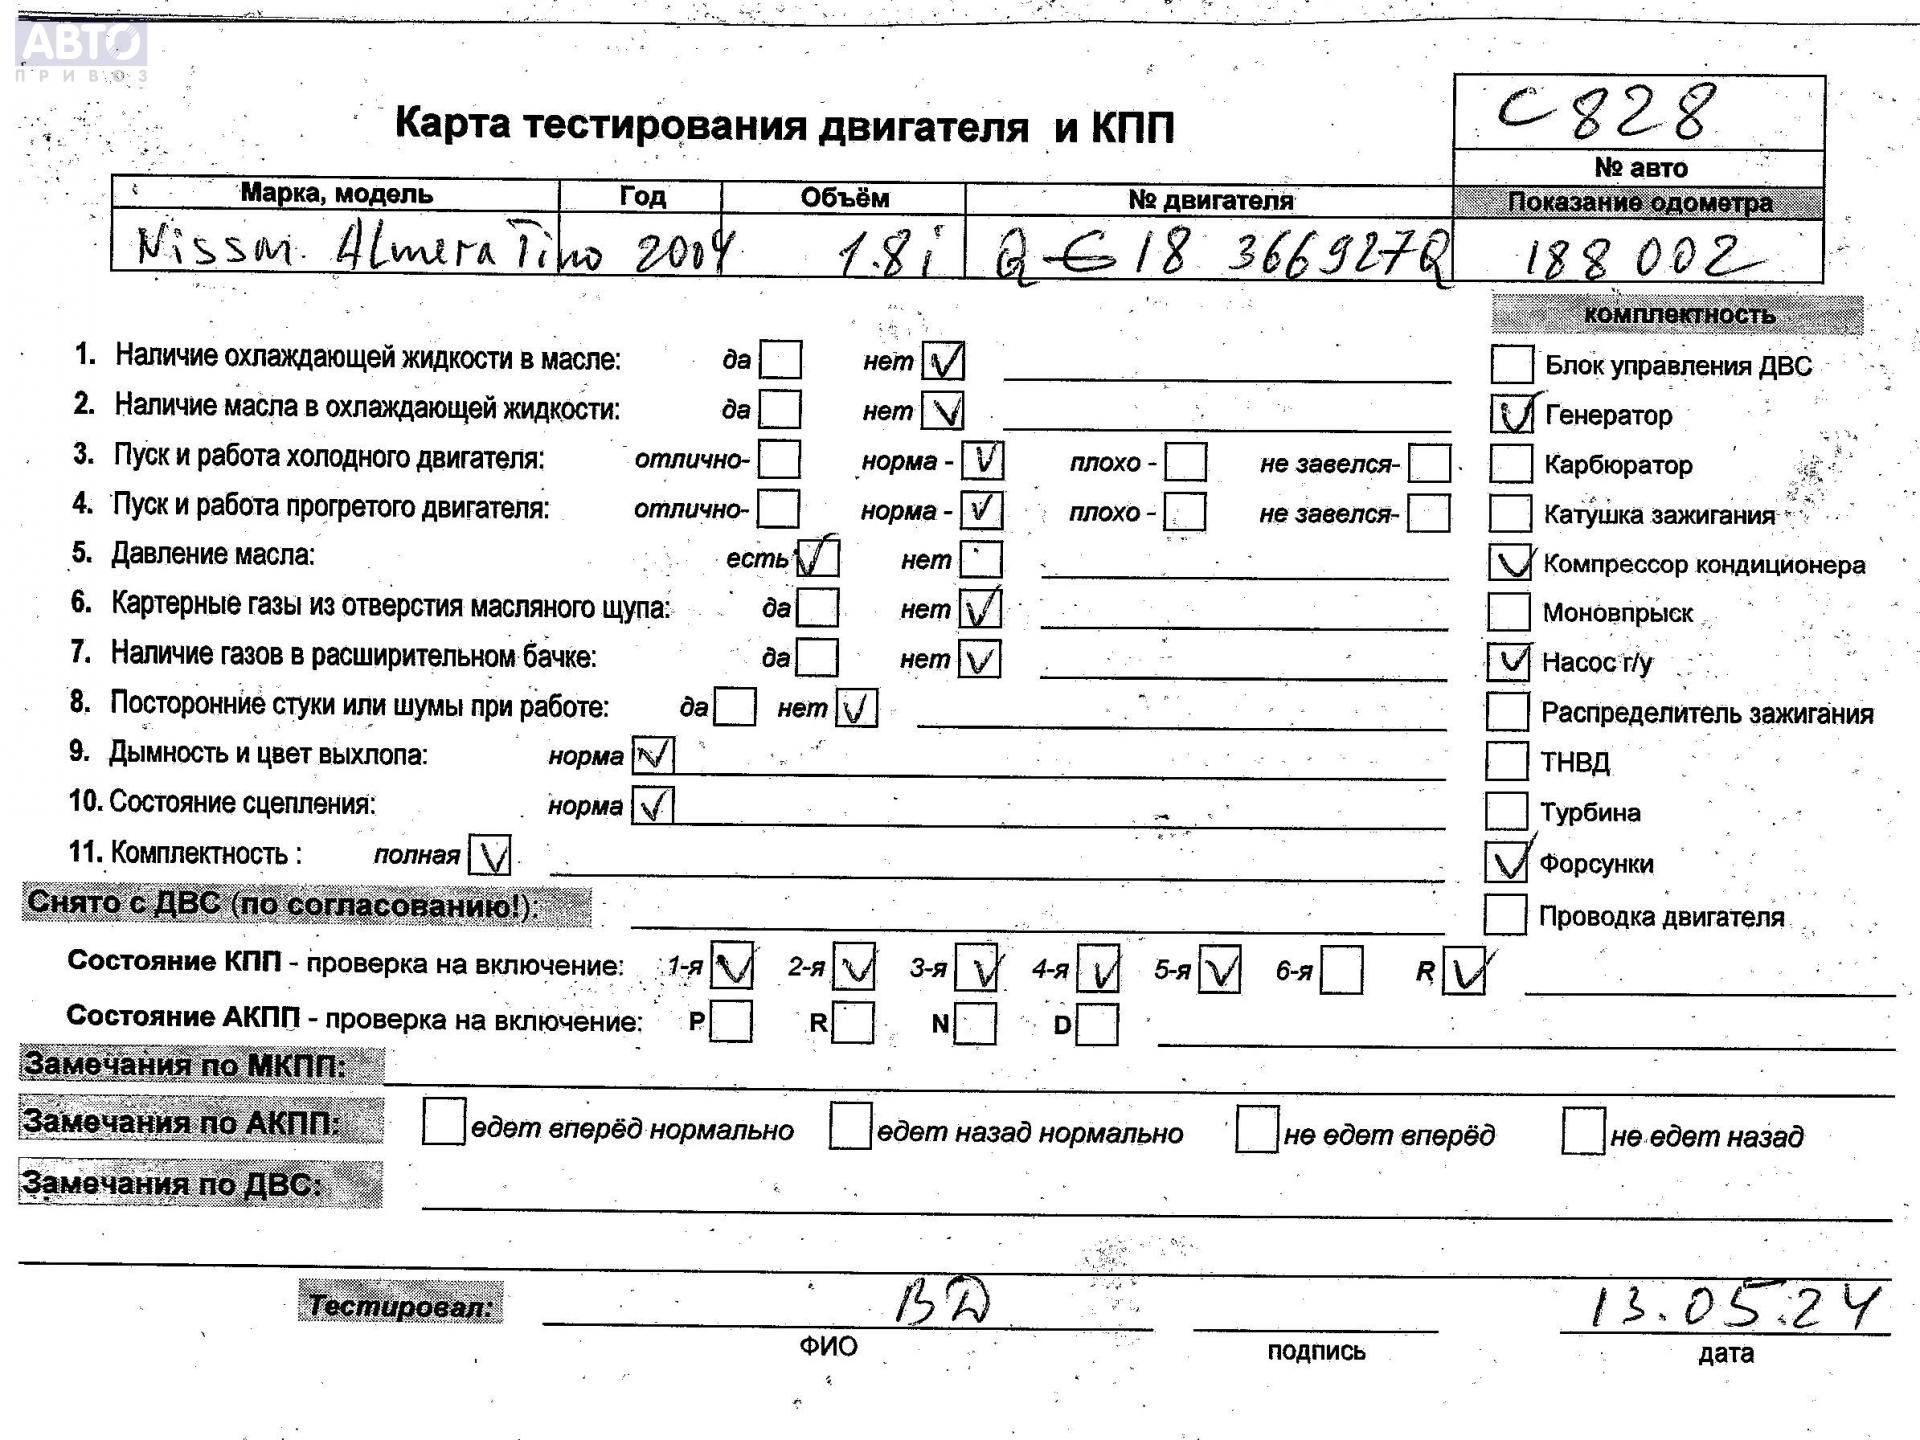 АВТО
ПРИВОЗ
Карта тестирования двигателя и КПП
C828
№ авто
Марка, модель Год Объём № двигателя Показание одометра
Nissan Almera Tino 2004 1.8i QG18 366927Q 188 002
комплектность
1. Наличие охлаждающей жидкости в масле: да нет ✓
Блок управления ДВС
2. Наличие масла в охлаждающей жидкости: да нет ✓
✓ Генератор
3. Пуск и работа холодного двигателя: отлично- норма - ✓ плохо - не завелся-
Карбюратор
4. Пуск и работа прогретого двигателя: отлично- норма - ✓ плохо - не завелся-
Катушка зажигания
5. Давление масла: есть ✓ нет
✓ Компрессор кондиционера
6. Картерные газы из отверстия масляного щупа: да нет ✓
Моновпрыск
7. Наличие газов в расширительном бачке: да нет ✓
✓ Насос г/у
8. Посторонние стуки или шумы при работе: да нет ✓
Распределитель зажигания
9. Дымность и цвет выхлопа: норма ✓
ТНВД
10. Состояние сцепления: норма ✓
Турбина
11. Комплектность : полная ✓
✓ Форсунки
Снято с ДВС (по согласованию!):
Проводка двигателя
Состояние КПП - проверка на включение: 1-я ✓ 2-я ✓ 3-я ✓ 4-я ✓ 5-я ✓ 6-я R ✓
Состояние АКПП - проверка на включение: P R N D
Замечания по МКПП:
Замечания по АКПП: едет вперёд нормально едет назад нормально не едет вперёд не едет назад
Замечания по ДВС:
Тестировал: ВД 13.05.24
ФИО подпись дата